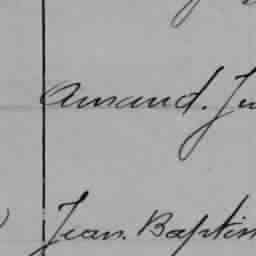 Amand. Ju
Jean. Baptis